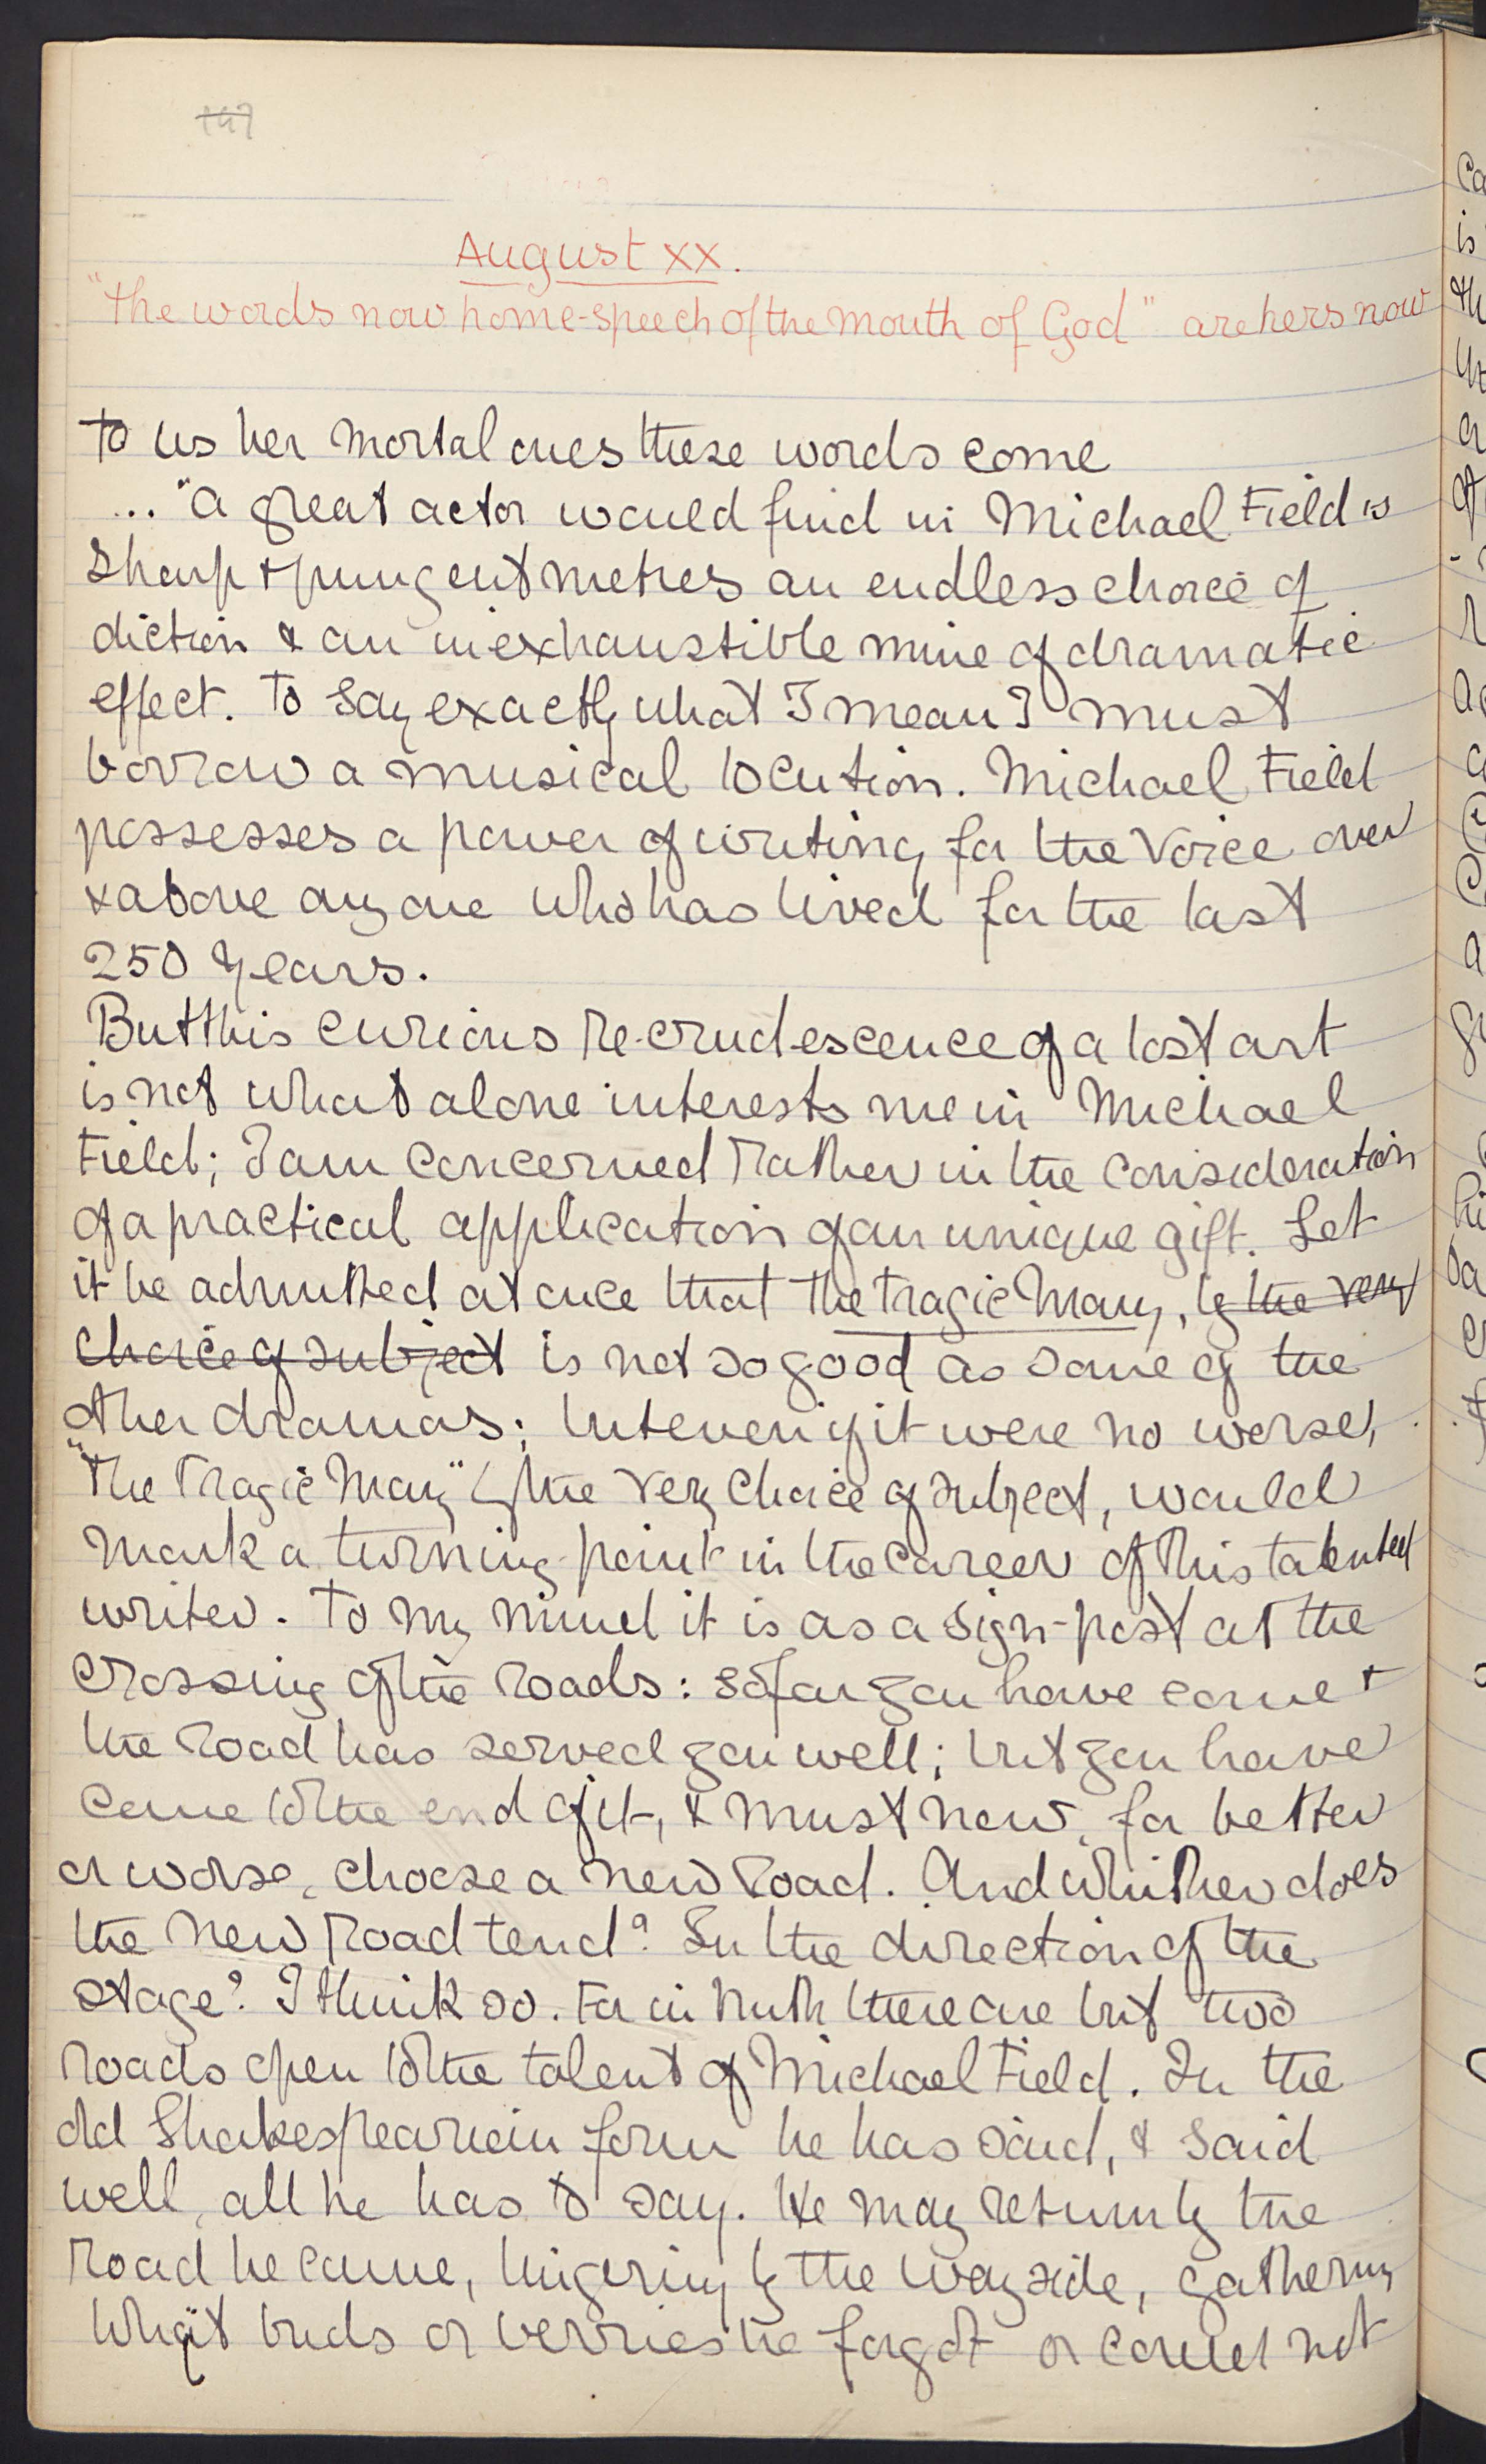 147
August XX.
"the words now home-speech of the mouth of God" are hers now
to us her mortal ones these words come
... "a great actor would find in Michael Field's
sharp & pungent metres an endless choice of
diction & an inexhaustible mine of dramatic
effect. To say exactly what I mean I must
borrow a musical locution. Michael Field
possesses a power of writing for the voice over
& above any one who has lived for the last
250 years.
But this curious re-crudescence of a lost art
is not what alone interests me in Michael
Field; I am concerned rather in the consideration
of a practical application of an unique gift. Let
it be admitted at once that the Tragic Mary, by the very
choice of subject is not so good as some of the
other dramas; but even if it were no worse,
"The Tragic Mary" by the very choice of subject, would
mark a turning-point in the career of this talented
writer. To my mind it is as a sign-post at the
crossing of the roads: so far you have come &
the road has served you well; but you have
come to the end of it, & must now, for better
or worse, choose a new road. And whither does
the new road tend? In the direction of the
stage? I think so. For in truth there are but two
roads open to the talent of Michael Field. In the
old Shakespearian form he has said, & said
well, all he has to say. He may return by the
road he came, lingering by the wayside, gathering
what buds or berries he forgot or cared not